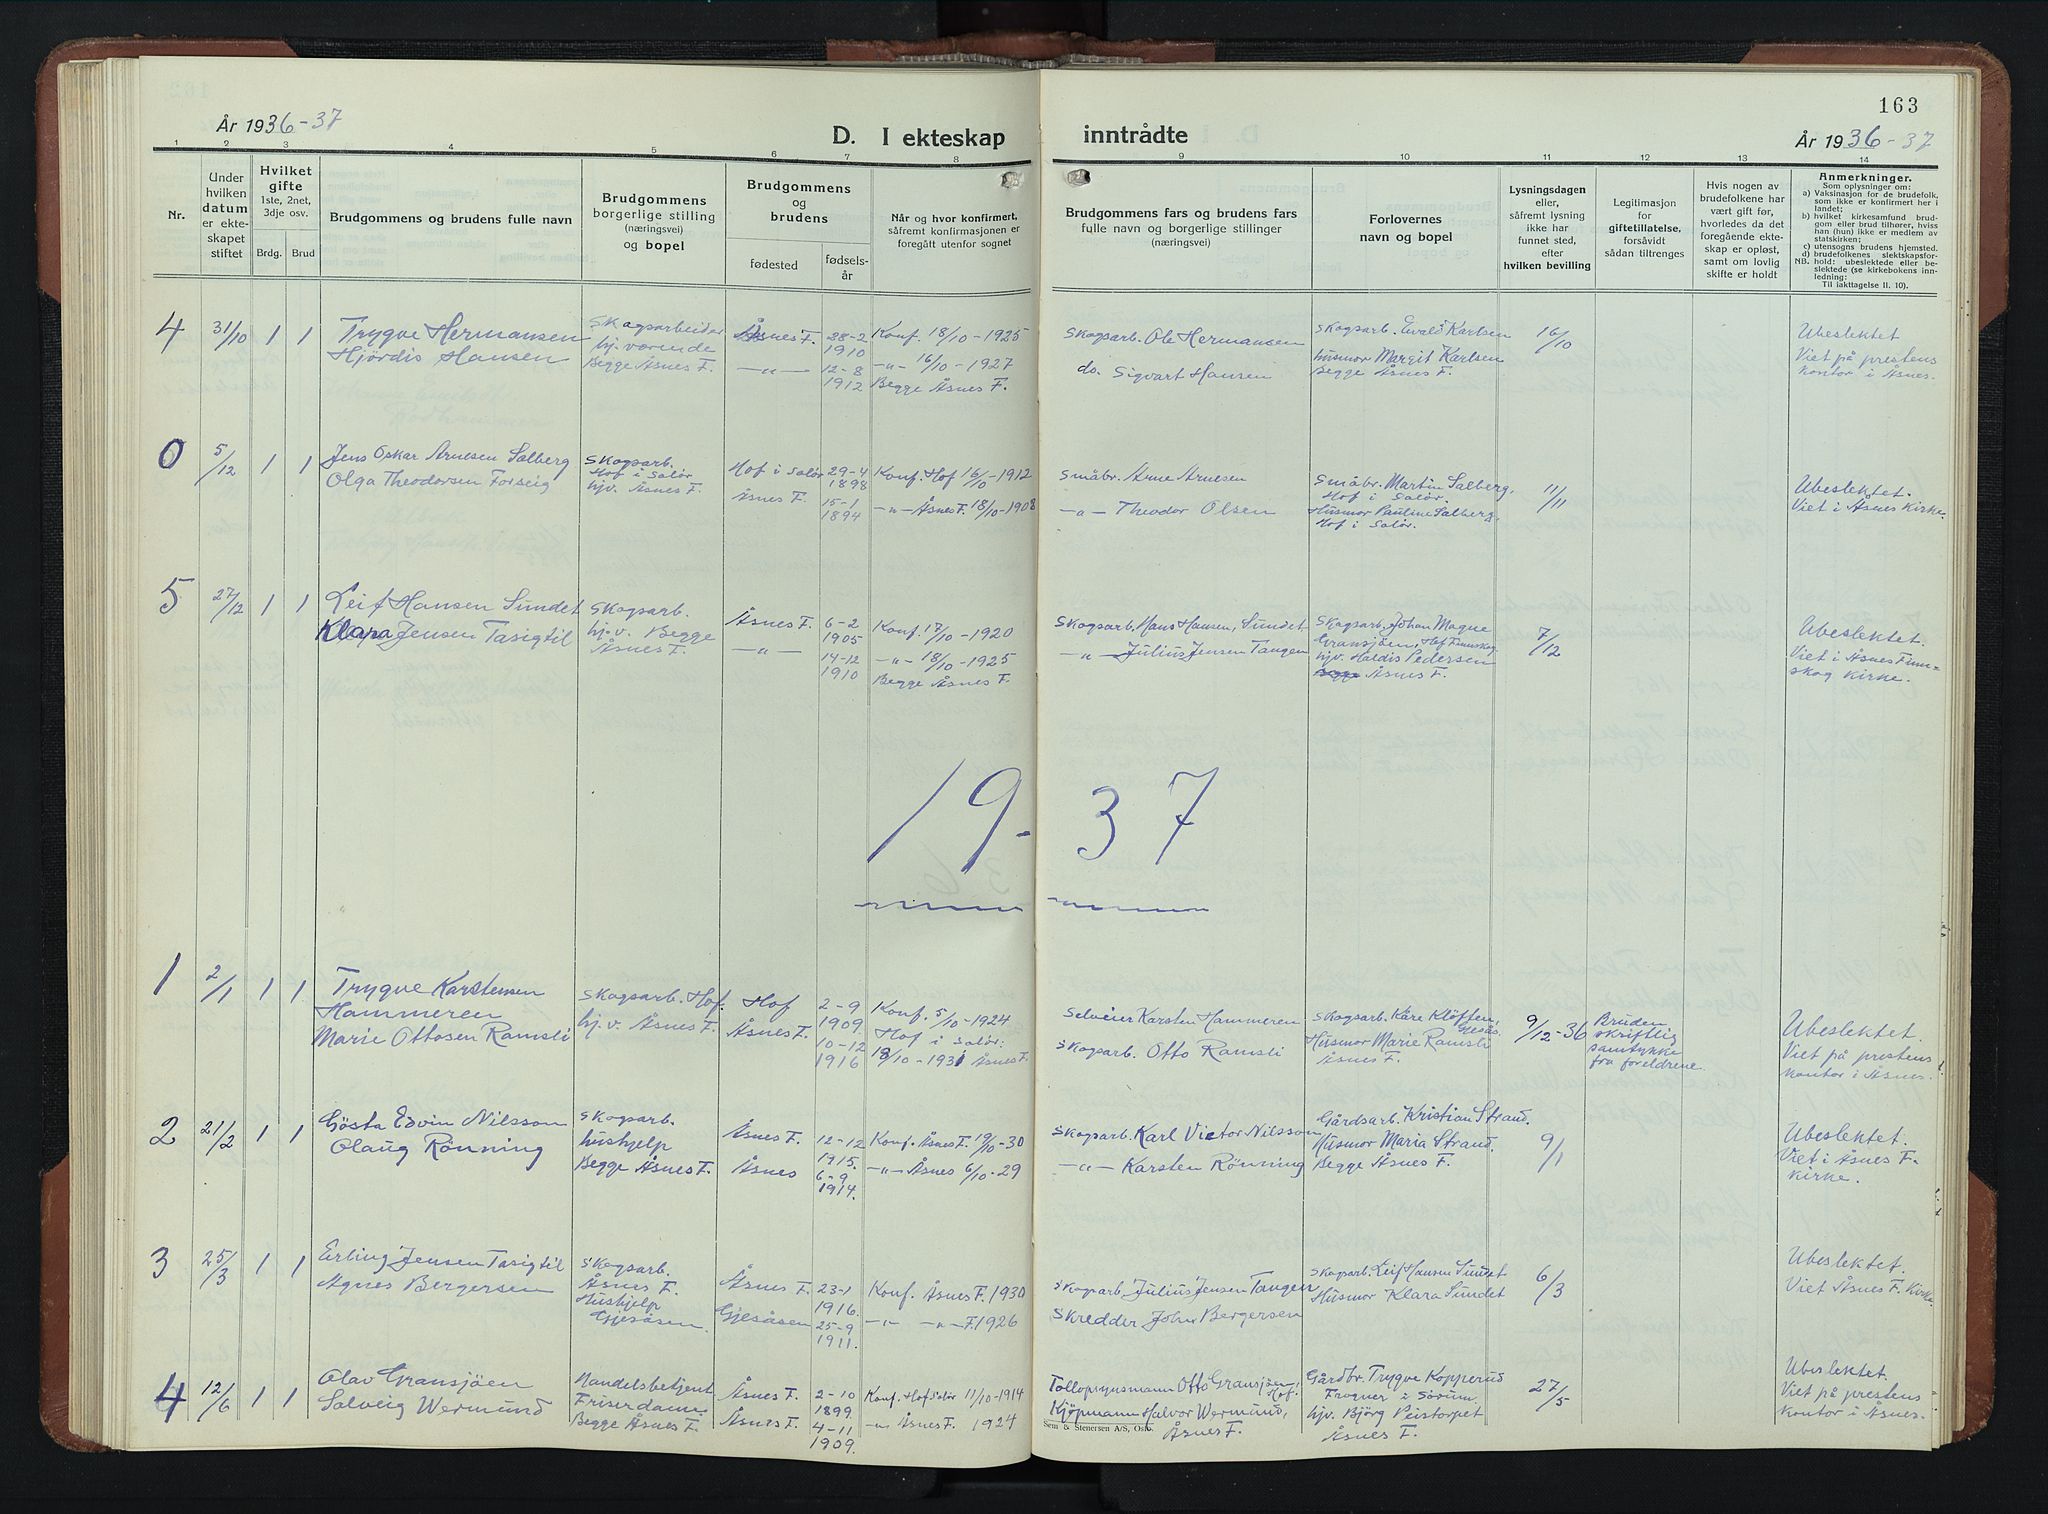 163
År 1936-37
D. I ekteskap inntrådte
År 1936-37
1 2 3 4 5 6 7 8 9 10 11 12 13 14
Nr.
Under hvilken datum er ekteskapet stiftet
Hvilket gifte 1ste, 2net, 3dje osv.
Brdg. Brud
Brudgommens og brudens fulle navn
Brudgommens borgerlige stilling (næringsvei) og bopel
Brudgommens og brudens
fødested
fødselsår
Når og hvor konfirmert, såfremt konfirmasjonen er foregått utenfor sognet
Brudgommens fars og brudens fars fulle navn og borgerlige stillinger (næringsvei)
Forlovernes navn og bopel
Lysningsdagen eller, såfremt lysning ikke har funnet sted, efter hvilken bevilling
Legitimasjon for giftetillatelse, forsåvidt sådan tiltrenges
Hvis nogen av brudefolkene har vært gift før, hvorledes da det foregående ekteskap er opløst, samt om lovlig skifte er holdt
Anmerkninger.
Som oplysninger om:
a) Vaksinasjon for de brudefolk, som ikke er konfirmert her i landet;
b) hvilket kirkesamfund brudgom eller brud tilhører, hviss han (hun) ikke er medlem av statskirken;
c) utensogns brudens hjemsted.
d) brudefolkenes slektskapsforhold: ubeslektede eller beslektede (se kirkebokens innledning:
NB. Til iakttagelse II. 10).
4 31/10 1 1 Trygve Hermansen
Hjördis Hansen
Skogsarbeider
hj.værende
Begge Åsnes F.
Åsnes F. 28-2 1910
-"- 12-8 1912
Konf. 18/10-1925
-"- 16/10-1927
Begge Åsnes F.
Skogsarb. Ole Hermansen
do. Sigvart Hansen
Skogsarb. Evald Karlsen
husmor Margit Karlsen
Begge Åsnes F.
16/10
Ubeslektet
Viet på prestens
kontor i Åsnes.
0 5/12 1 1 Jens Oskar Arnesen Salberg
Olga Theodorsen Forseig
Skogsarb.
Hof i Solør
hjv. Åsnes F.
Hof i Solør 29-4 1898
Åsnes F. 15-1 1894
Konf. Hof 16/10-1912
-"- Åsnes F. 18/10-1908
Småbr. Arne Arnesen
-"- Theodor Olsen
Småbr. Martin Salberg,
Hof i Solør.
Husmor Pauline Salberg,
Hof i Solør.
11/11
Ubeslektet.
Viet i Åsnes Kirke.
5 27/12 1 1 Leif Hansen Sundet
Klara Jensen Tasigtil
Skogsarb.
hj.v. Begge
Åsnes F.
Åsnes F. 6-2 1905
-"- 14-12 1910
Konf. 17/10-1920
-"- 18/10-1925
Begge Åsnes F.
Skogsarb. Hans Hansen, Sundet
-"- Julius Jensen Tangen
Skogsarb. Johan Magne
Gransjöen, Hof Finnskog
hjv. Haldis Pedersen
Begge Åsnes F.
7/12
Ubeslektet.
Viet i Åsnes Finn-
skog Kirke.
19-37
1 2/1 1 1 Trygve Karstensen
Hammeren
Marie Ottosen Ramsli
Skogsarb. Hof.
hj.v. Åsnes F.
Hof 2-9 1909.
Åsnes F. 10-12 1916
Konf. 5/10-1924
Hof i Solør:
18/10-1931 Åsnes F.
Selveier Karsten Hammeren
Skogarb. Otto Ramsli
Skogsarb. Kåre Klöffen,
Gjesås.
Husmor Marie Ramsli
Åsnes F.
9/12-36
Bruden
skriftlig
samtykke
fra foreldrene.
Ubeslektet
Viet på prestens
kontor i Åsnes.
2 21/2 1 1 Gösta Edvin Nilsson
Olaug Rönning
Skogsarb.
hushjelp
Begge Åsnes F.
Åsnes F. 12-12 1915.
Åsnes 6-9 1914.
Konf. Åsnes F. 19/10-30
-"- Åsnes 6/10-29
Skogsarb. Karl Victor Nilsson
-"- Karsten Rönning
Gårdsarb. Kristian Strand.
Husmor Maria Strand.
Begge Åsnes F.
9/1
Ubeslektet.
Viet i Åsnes F.
Kirke.
3 25/3 1 1 Erling Jensen Tasigtil
Agnes Bergersen
Skogsarb.
Åsnes F.
Hushjelp
Gjesåsen.
Åsnes F. 23-1 1916.
Gjesåsen 25-9 1911.
Konf. Åsnes F. 1930
-"- -"- F. 1926
Skogarb. Julius Jensen Tangen
Skredder John Bergersen
Skogsarb. Leif Hansen Sundet
Husmor Klara Sundet
6/3
Ubeslektet.
Viet Åsnes F. Kirke.
4 12/6 1 1 Olav Gransjöen
Solveig Wermund
Handelsbetjent
Friserdame
Begge Åsnes F.
Åsnes F. 2-10 1899.
Åsnes F. 4-11 1909.
Konf. Hof Solør 11/10-1914
-"- Åsnes F. 1924
Tollopsynsmann Otto Gransjöen,
Hof.
Kjöpmann Halvor Wermund,
Åsnes F.
Gårdbr. Trygve Kopperud
Frogner i Sörum
hjv. Björg Peistorpet
Åsnes F.
27/5
Ubeslektet.
Viet på prestens
kontor i Åsnes.
Sem & Stenersen A/S, Oslo.